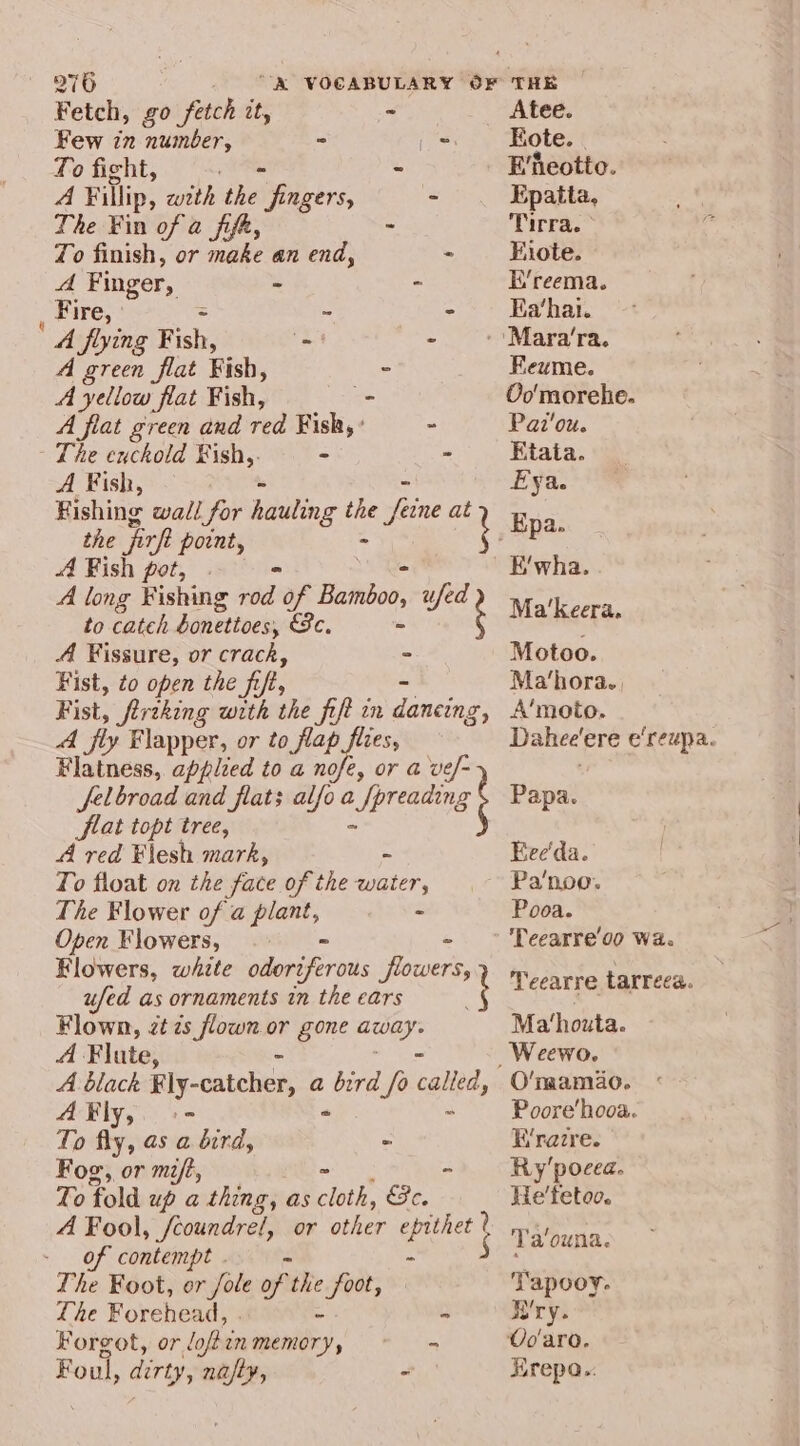 276 A VOCABULARY OF THE
Fetch, go fetch it, - Atee.
Few in number, - - Eote.
To fight, - - E'neotto.
A Fillip, with the fingers, - Epatta,
The Fin of a fiſh, - Tirra.
To finish, or make an end, - Eiote.
A Finger, - - E'reema.
Fire, - - - Ea'hai.
A flying Fish, - - Mara'ra.
A green flat Fish, - Eeume.
A yellow flat Fish, - Oo'morehe.
A flat green and red Fish, - Pai'ou.
The cuckold Fish, - - Etata.
A Fish, - - Eya.
Fishing wall for hauling the ſeine at
the firſt point, - } Epa.
A Fish pot, - - E'wha.
A long Fishing rod of Bamboo, uſed
to catch bonettoes, &c. - } Ma'keera.
A Fissure, or crack, - Motoo.
Fist, to open the fiſt, - Ma'hora.
Fist, ſtriking with the fiſt in dancing, A'moto.
A fly Flapper, or to flap flies, Dahee'ere e'reupa.
Flatness, applied to a noſe, or a veſ-
ſel broad and flat; alſo a ſpreading } Papa.
flat topt tree, -
A red Flesh mark, - Eee'da.
To float on the face of the water, Pa'noo.
The Flower of a plant, - Pooa.
Open Flowers, - - Teearre'oo wa.
Flowers, white odoriferous flowers,
uſed as ornaments in the ears } Teearre tarreea.
Flown, it is flown or gone away. Ma'houta.
A Flute, - - Weewo.
A black Fly-catcher, a bird ſo called, O'mamäo.
A Fly, - - - Poore'hooa.
To fly, as a bird, - E'raire.
Fog, or miſt, - - Ry'poeea.
To fold up a thing, as cloth, &c. He'fetoo.
A Fool, ſcoundrel, or other epithet
of contempt - - } Ta'ouna.
The Foot, or ſole of the foot, Tapooy.
The Forehead, - - E'ry.
Forgot, or loſt in memory, - Oo'aro.
Foul, dirty, naſty, - Erepo.